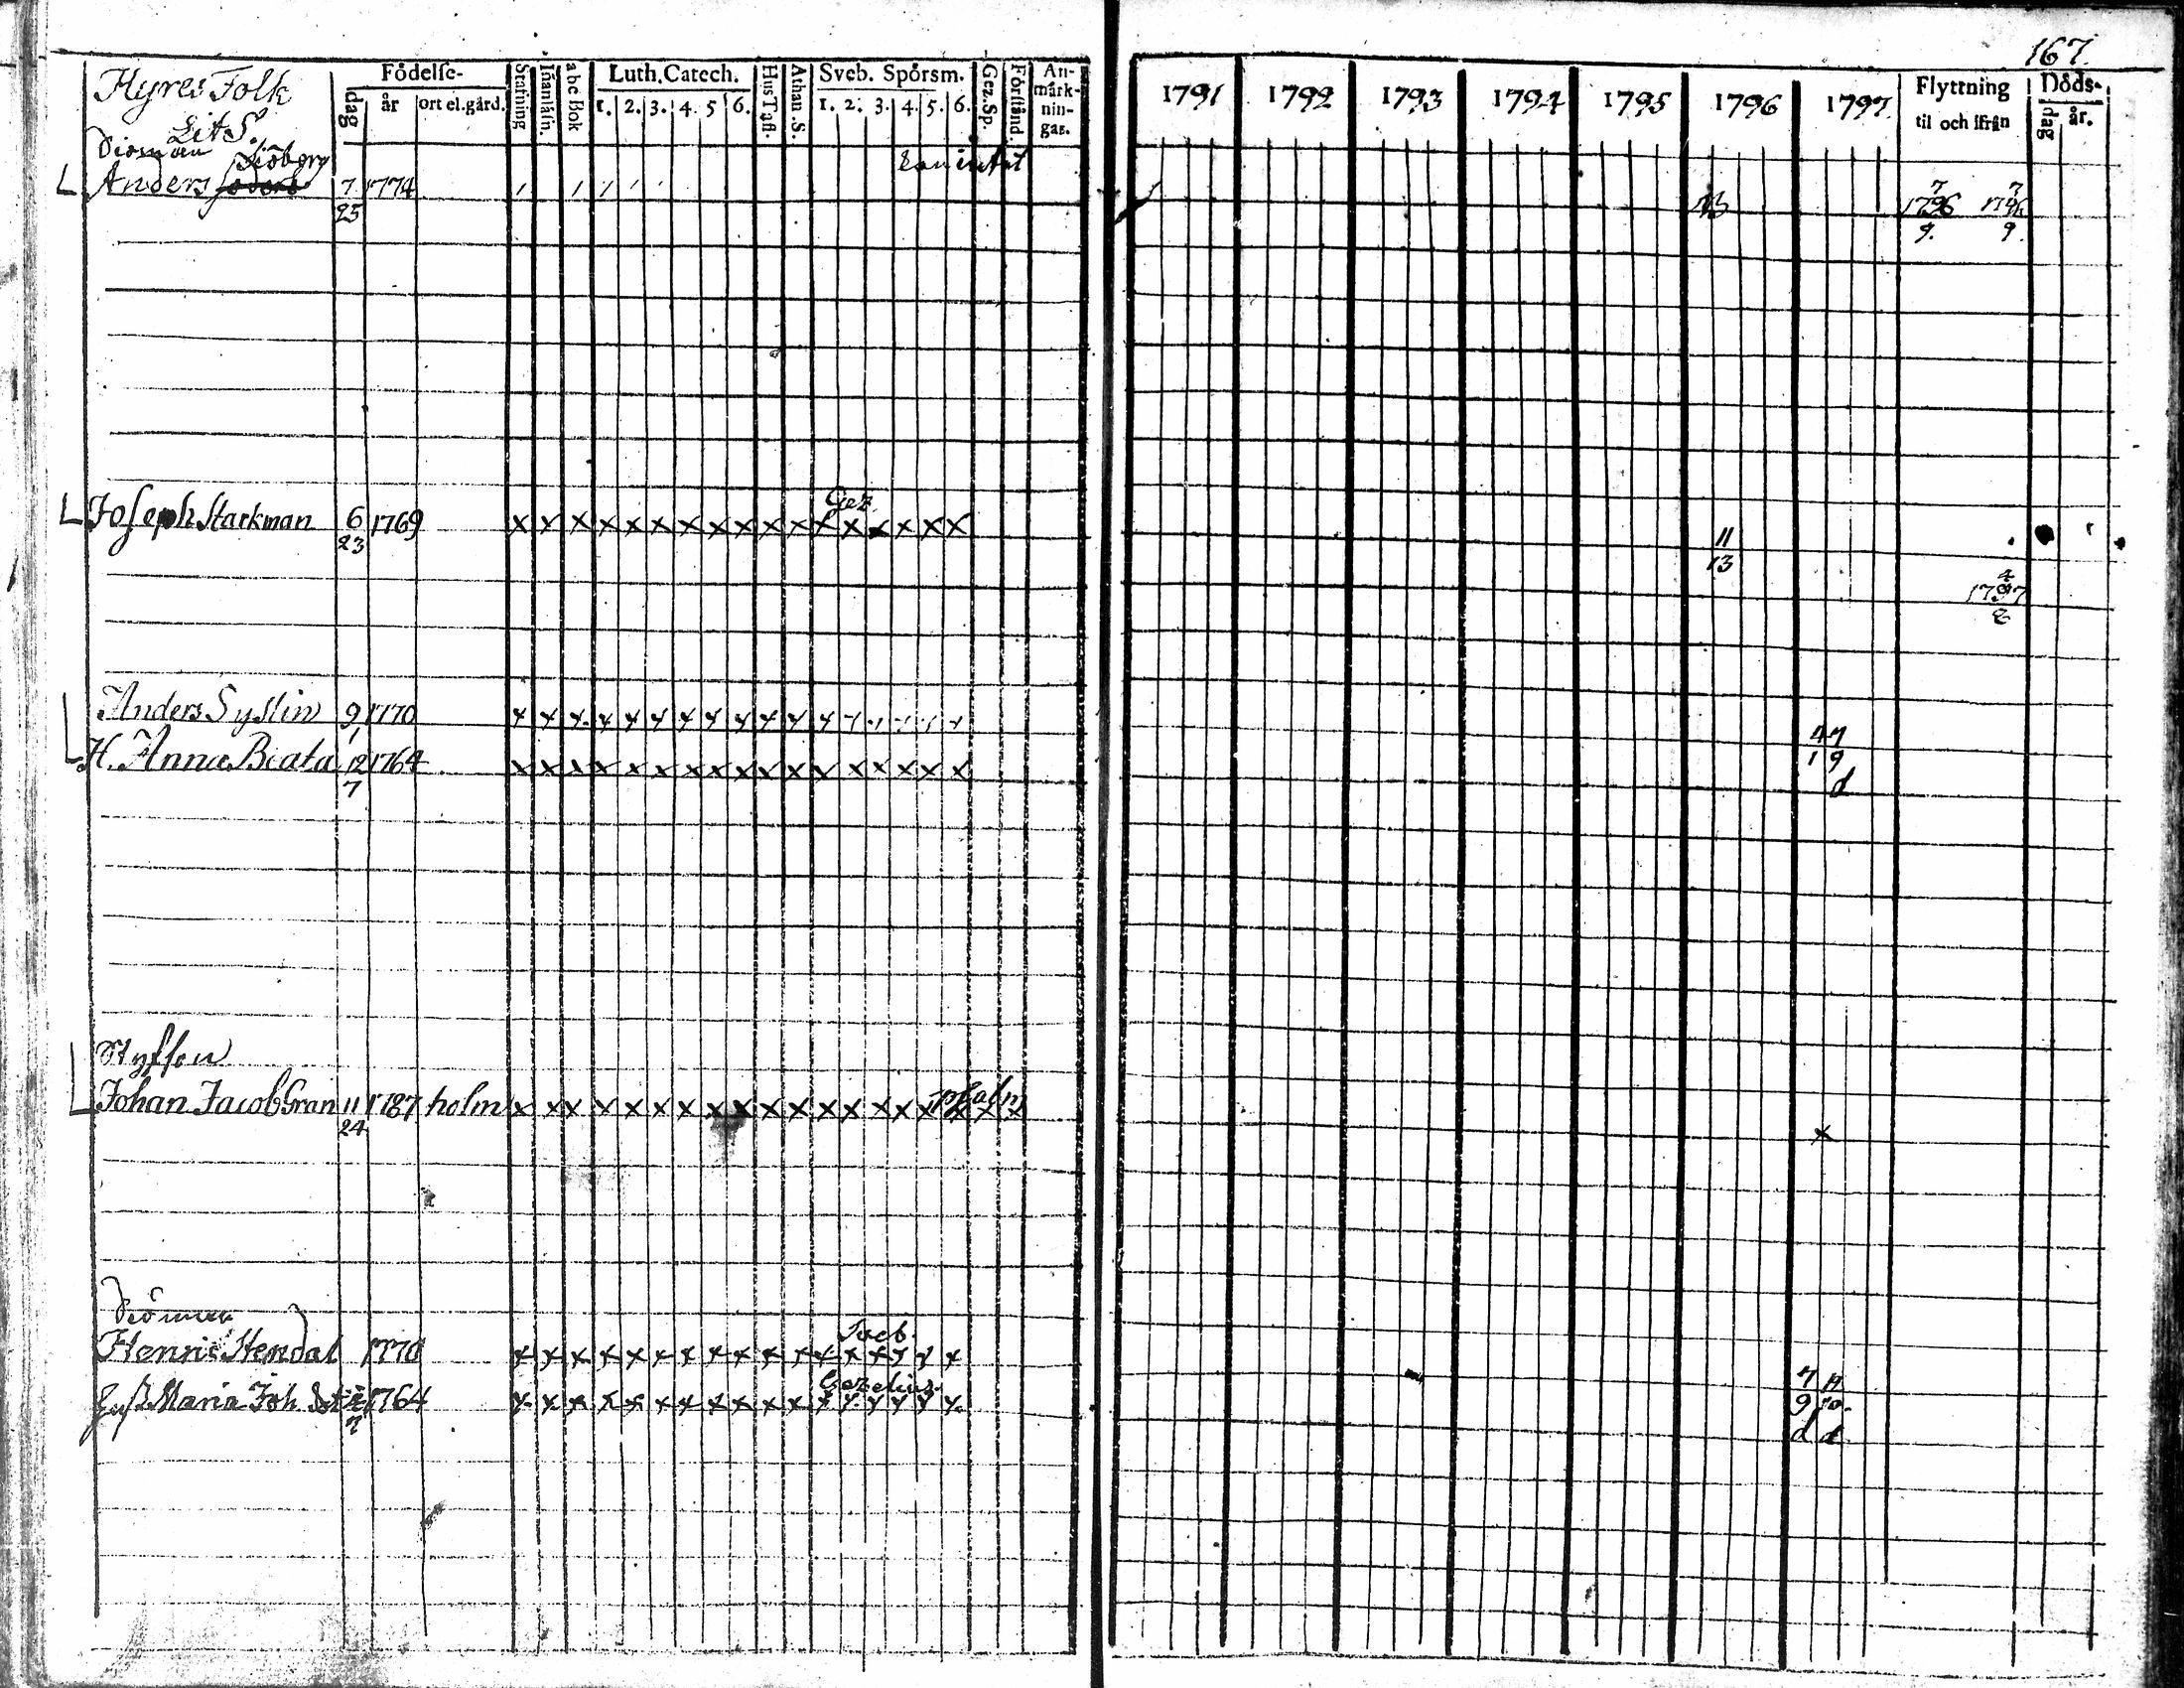 167.
Hyres Folk
Födelse-
dag
år
ort el. gård.
Stafning
Innanläsn.
abc Bok
Luth. Catech.
1. 2. 3. 4. 5 6.
Hus Tafl.
Athan. S.
Sveb. Spörsm.
1. 2. 3. 4. 5. 6.
Gez. Sp.
Förstånd.
An-
märk-
nin-
gar.
1791 1792 1793 1794 1795 1796 1797
Flyttning
til och ifrån
Döds-
dag
år.
Lit S.
Sjöberg
Anders 7 1774
25
13
7 7
1796 1796
9. 9.
Gez.
Joseph Starkman 6 1769 x x x x x x x x x x x x x x x x x
23
11
13
4
1797
2
Anders Syslin 9 1770
1
4 7
H. Anna Beata 12 1764 x x x x x x x x x x x x x x x x x
7
1 9
d
Johan Jacob Gran 11 1787 holm x x x x x x x x x x x x x x x x x x x
24
psalm
x
Sveb.
Henric Stendal 1770
Gezelius.
Maria Joh. 1764
7 11
9 10.
d d